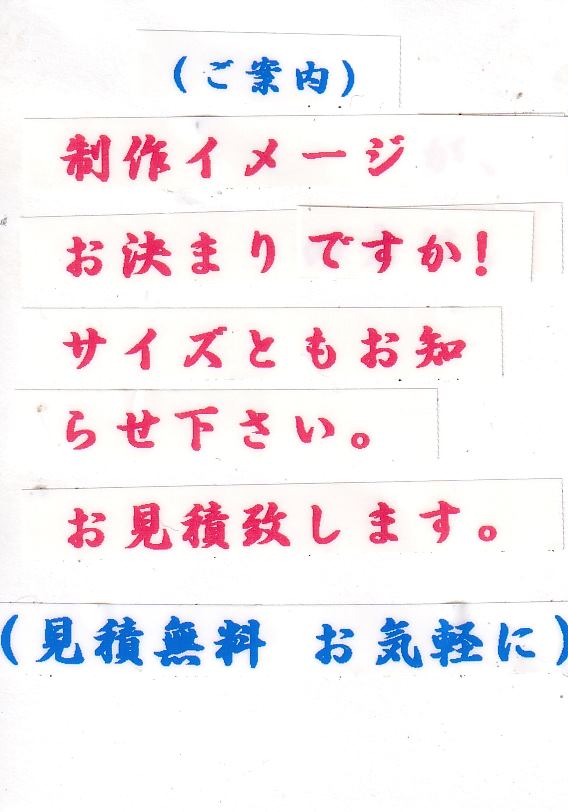 (ご案内)
制作イメージ
お決まりですか!
サイズともお知
らせ下さい。
お見積致します。
(見積無料　お気軽に)